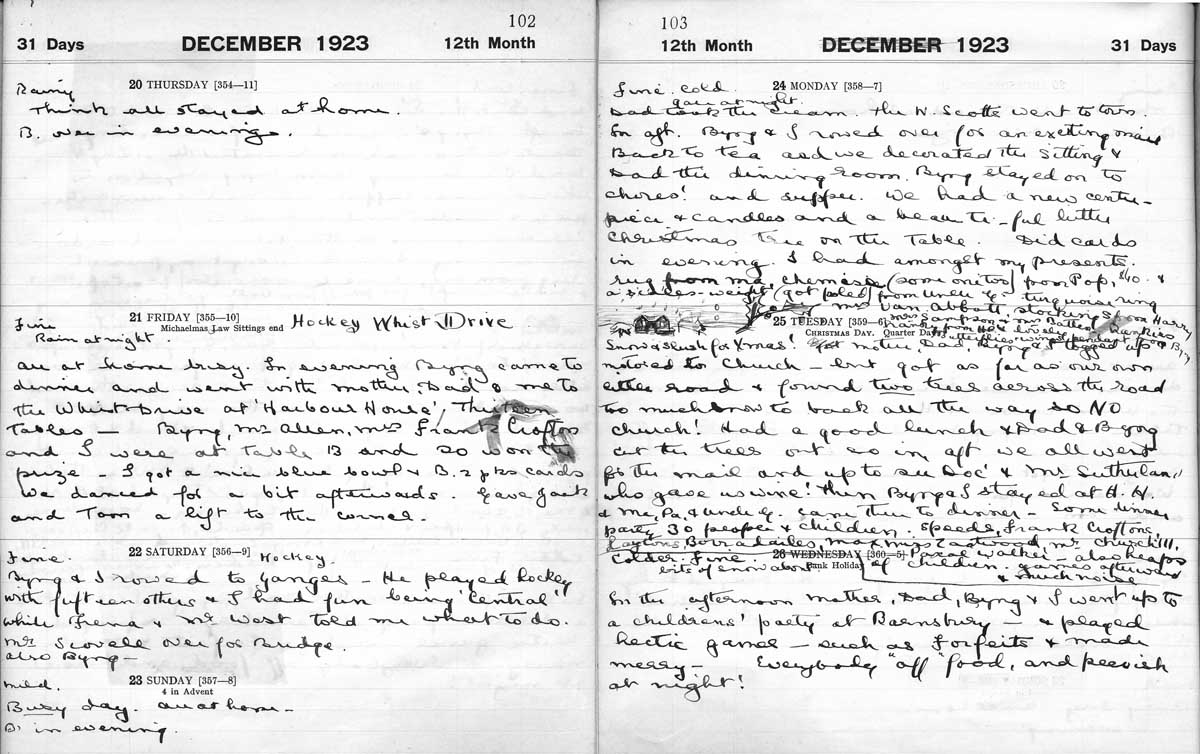 102
31 Days DECEMBER 1923 12th Month
20 THURSDAY [354—11]
Rainy
Think all stayed at home.
B. over in evening.
21 FRIDAY [355—10]
Michaelmas Law Sittings end
Hockey Whist Drive
Fine
Rain at night.
All at home busy. In evening Byng came to
dinner and went with mother, Dad & me to
the Whist Drive at 'Harbour House', Thirteen
Tables — Byng, Mrs Allen, Mrs Frank Crofton
and I were at Table 13 and so won the
prize — I got a nice blue bowl & B. 2 pks cards
We danced for a bit afterwards. Gave Jack
and Tom a lift to the corner.
22 SATURDAY [356—9]
Hockey.
Fine.
Byng & I rowed to Ganges — He played hockey
with fifteen others & I had fun being 'central'
while Irena & Mr West told me what to do.
Mr Scovell over for Bridge.
also Byng —
23 SUNDAY [357—8]
4 in Advent
mild.
Busy day. All at home —
B. in evening.
103
12th Month DECEMBER 1923 31 Days
24 MONDAY [358—7]
Fine. Cold.
gale at night.
Dad took the cream. The N. Scotts went to town.
In aft. Byng & I rowed over for an exciting mail
Back to tea and we decorated the sitting &
Dad the dining room. Byng stayed on to
chores! and supper. We had a new centre-
piece & candles and a beauti-ful little
Christmas tree on the table. Did cards
in evening. I had amongst my presents.
rug from ma, chemise (some one too) from Pop, $10. &
weight (got ) from Uncle G — turquoise ring
Mrs Van. Abbott, stockings from Harry
Mrs Sampson, Mr
hanky from lovely
butterflies wings pendant from Byng
25 TUESDAY [359—6]
CHRISTMAS DAY. Quarter Day
Snow & slush for Xmas! Got mother, Dad, Byng & I togged up &
motored to Church — but got as far as our own
road & found two trees across the road
too much snow to back all the way so NO
church! Had a good lunch & Dad & Byng
cut the trees out so in aft we all went
for the mail and up to see 'Doc' & Mrs Sutherland
who gave us wine! Then Byng & I stayed at H. H.
& Ma, Pa, & Uncle G. came there to dinner — Some dinner
party 30 people & children. Speeds, Frank Croftons
Laytons, Borradailes, Max, Miss Eastwood, Mr Churchill,
Walter — also heaps
of children. games afterward
& much noise
26 WEDNESDAY [360—5]
Bank Holiday
Colder. Fine.
bits of snow about.
In the afternoon mother, Dad, Byng & I went up to
a childrens' party at Barnsbury — & played
hectic games — such as Forfeits & made
merry — Everybody "off" food, and peevish
at night!